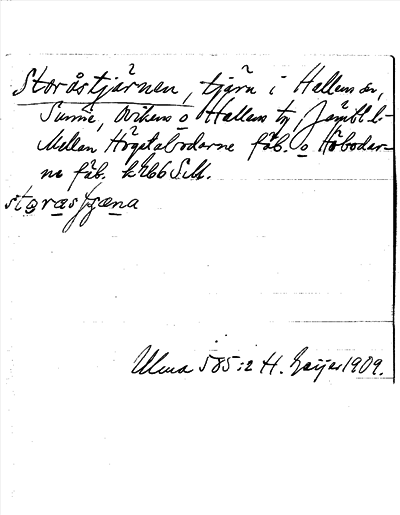 Storåstjärnen, tjärn i Hallens sn,
Sunne, Ovikens o Hallens tg, Jämtl. l.
Mellan Högstabodarne fäb. o Höbodar-
ne fäb. k. 266 S.M.
storåstjæna
Ulma 585:2 H. Geijer 1909.